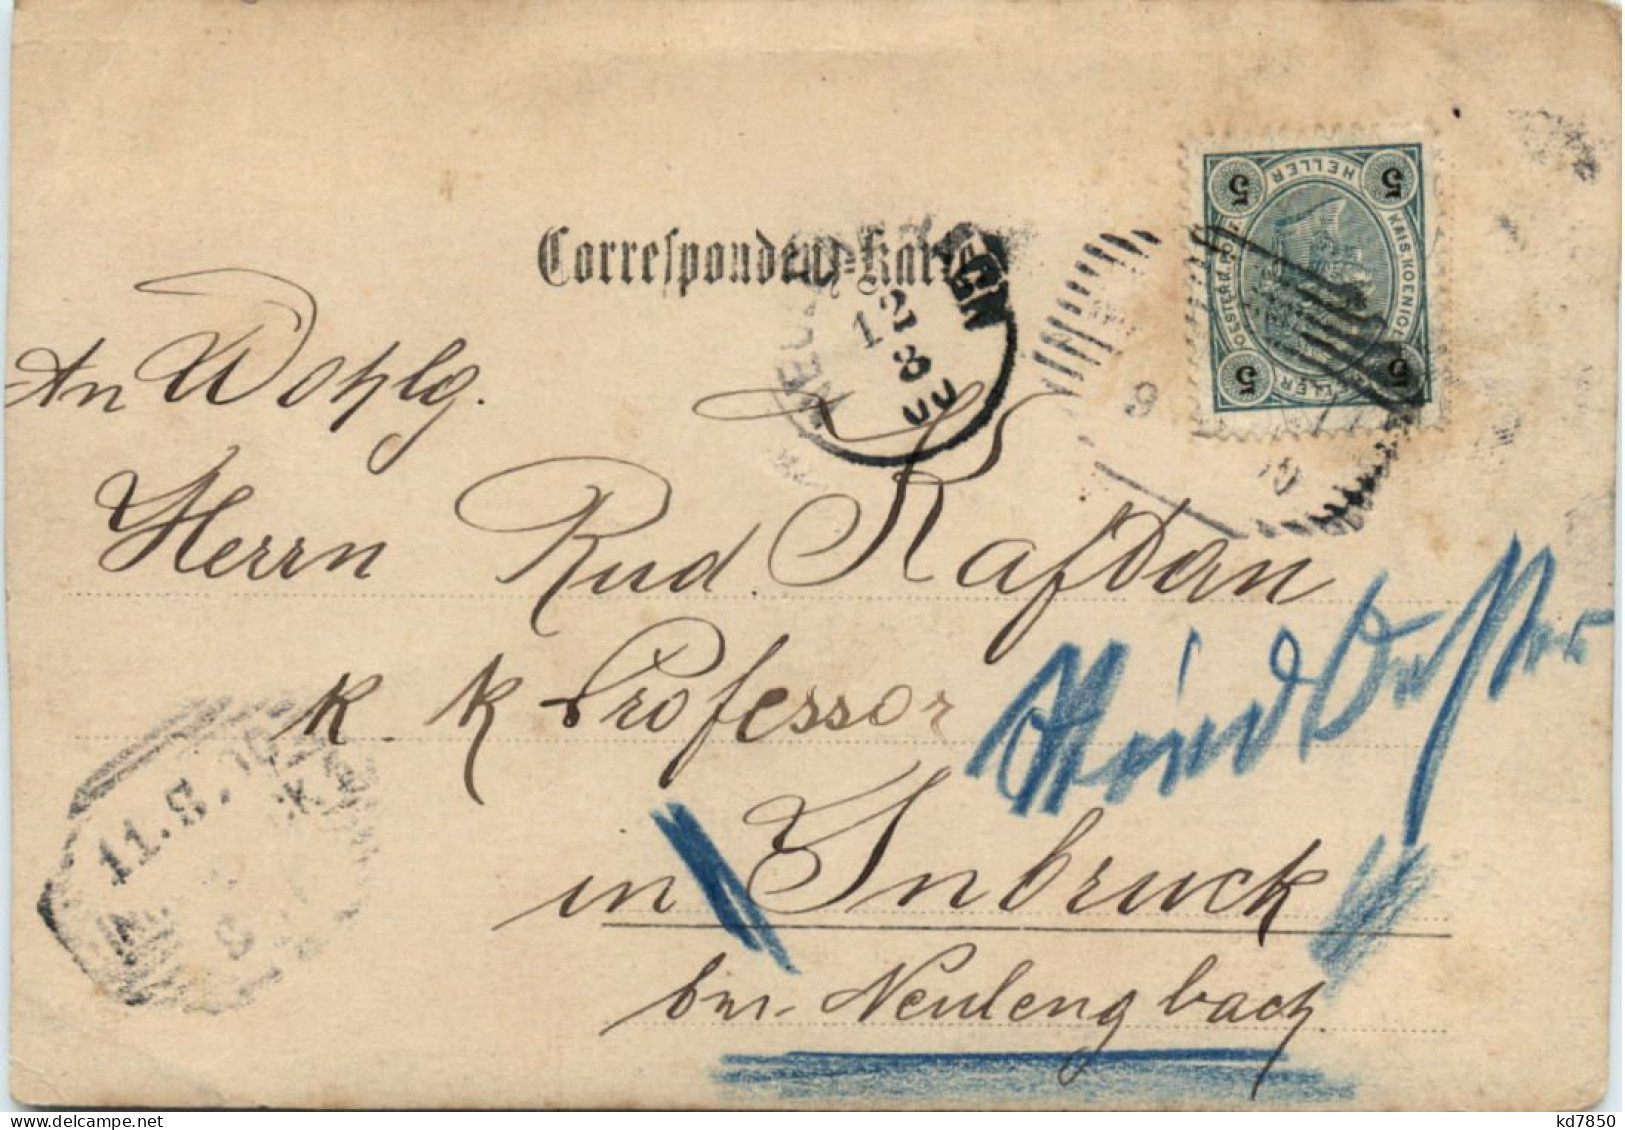 Correspondenz-Karte
12
8
00
5 HELLER 5
KAIS. KOENIGL.
OESTERR. POST
5 HELLER 5
9
An Wohlg.
Herrn Rud Kafdan
k. k Professor
11. 8.
8
in Inbruck
bei Neulengbach
kd7850